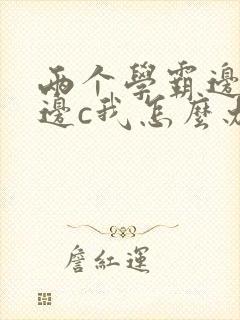 两个學霸邊
邊c我怎麼办
詹紅運